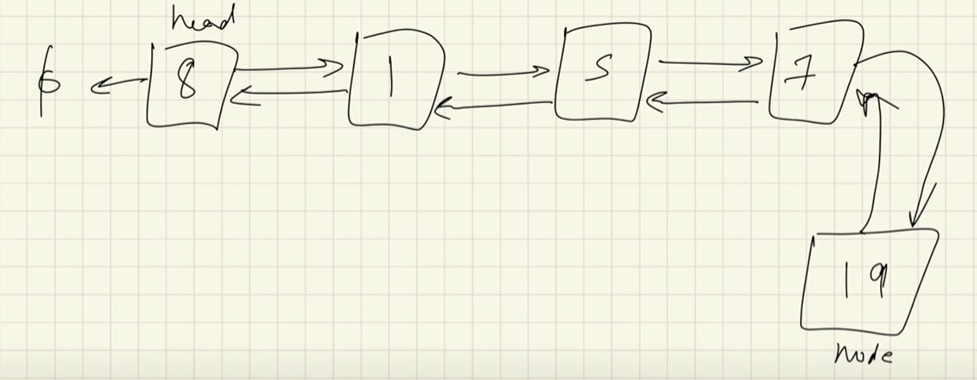 head
ϕ 8 1 5 7
19
node